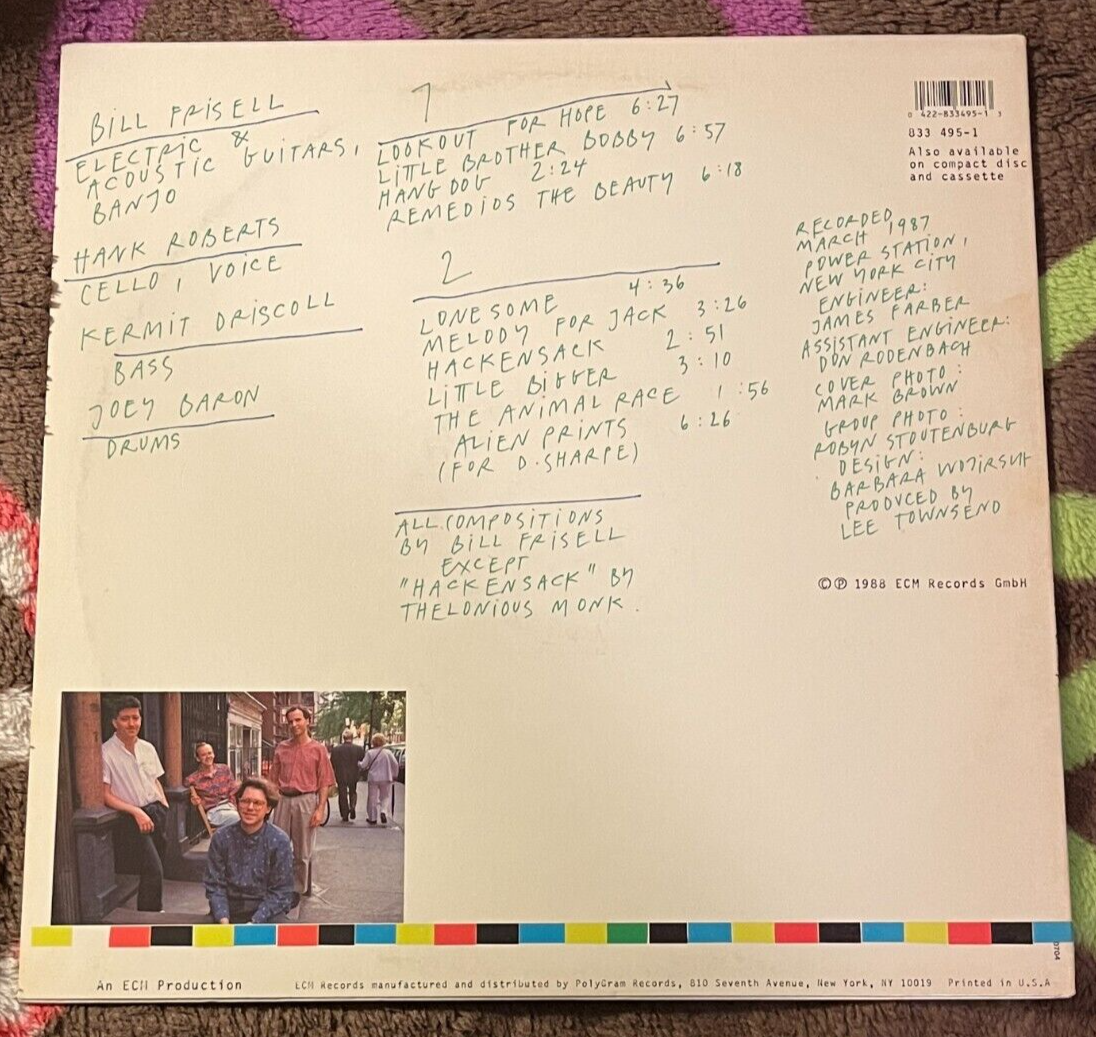 BILL FRISELL
ELECTRIC &
ACOUSTIC GUITARS,
BANJO
HANK ROBERTS
CELLO, VOICE
KERMIT DRISCOLL
BASS
JOEY BARON
DRUMS
1
LOOKOUT FOR HOPE 6:27
LITTLE BROTHER BOBBY 6:57
HANG DOG 2:24
REMEDIOS THE BEAUTY 6:18
2
LONESOME 4:36
MELODY FOR JACK 3:26
HACKENSACK 2:51
LITTLE BIGGER 3:10
THE ANIMAL RACE 1:56
ALIEN PRINTS 6:26
(FOR D. SHARPE)
ALL COMPOSITIONS
BY BILL FRISELL
EXCEPT
"HACKENSACK" BY
THELONIOUS MONK.
0 422-833495-1 3
833 495-1
Also available
on compact disc
and cassette
RECORDED
MARCH 1987
POWER STATION,
NEW YORK CITY
ENGINEER:
JAMES FARBER
ASSISTANT ENGINEER:
DON RODENBACH
COVER PHOTO:
MARK BROWN
GROUP PHOTO:
ROBYN STOUTENBURG
DESIGN:
BARBARA WOJIRSCH
PRODUCED BY
LEE TOWNSEND
©℗ 1988 ECM Records GmbH
0704
An ECM Production
ECM Records manufactured and distributed by PolyGram Records, 810 Seventh Avenue, New York, NY 10019 Printed in U.S.A